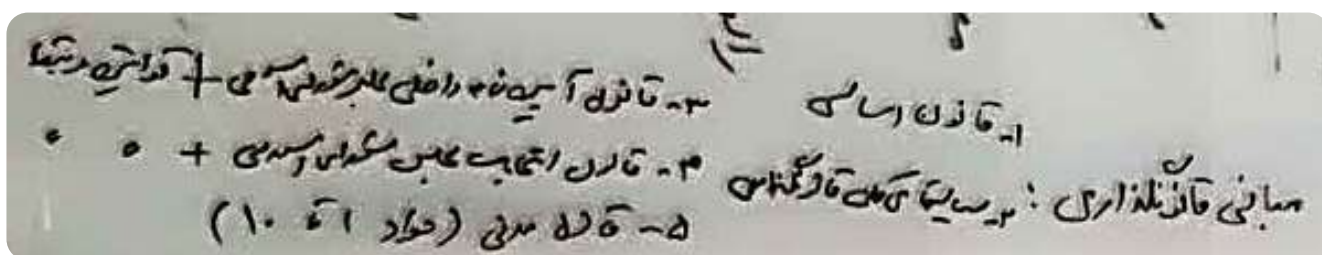 مبانی قانونگذاری :
۱- قانون اساسی
۲- سیاستهای کلی قانونگذاری
۳- قانون آیین نامه داخلی مجلس شورای اسلامی + قوانین مرتبط
۴- قانون انتخابات مجلس شورای اسلامی + " "
۵- قانون مدنی (مواد ۱ تا ۱۰)